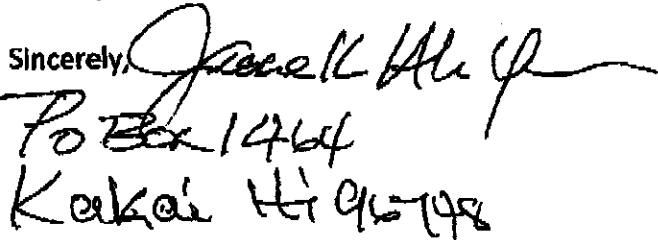 Sincerely,
Po Box 1464
Kakai Hi 96748